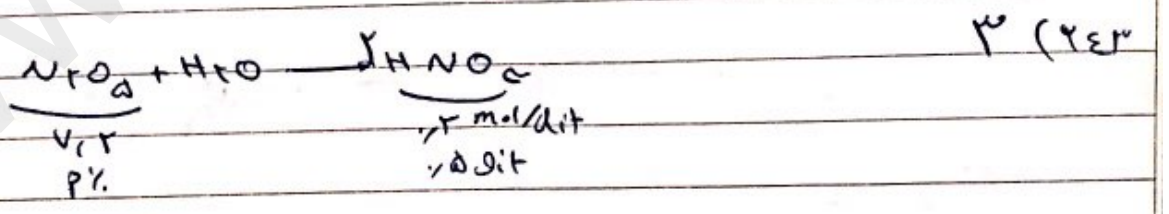 ۲۴۳) ۳
N۲O۵ + H۲O ⟶ ۲HNO۳
۷٫۲ ۰٫۲ mol/lit
P٪ ۰٫۵ lit